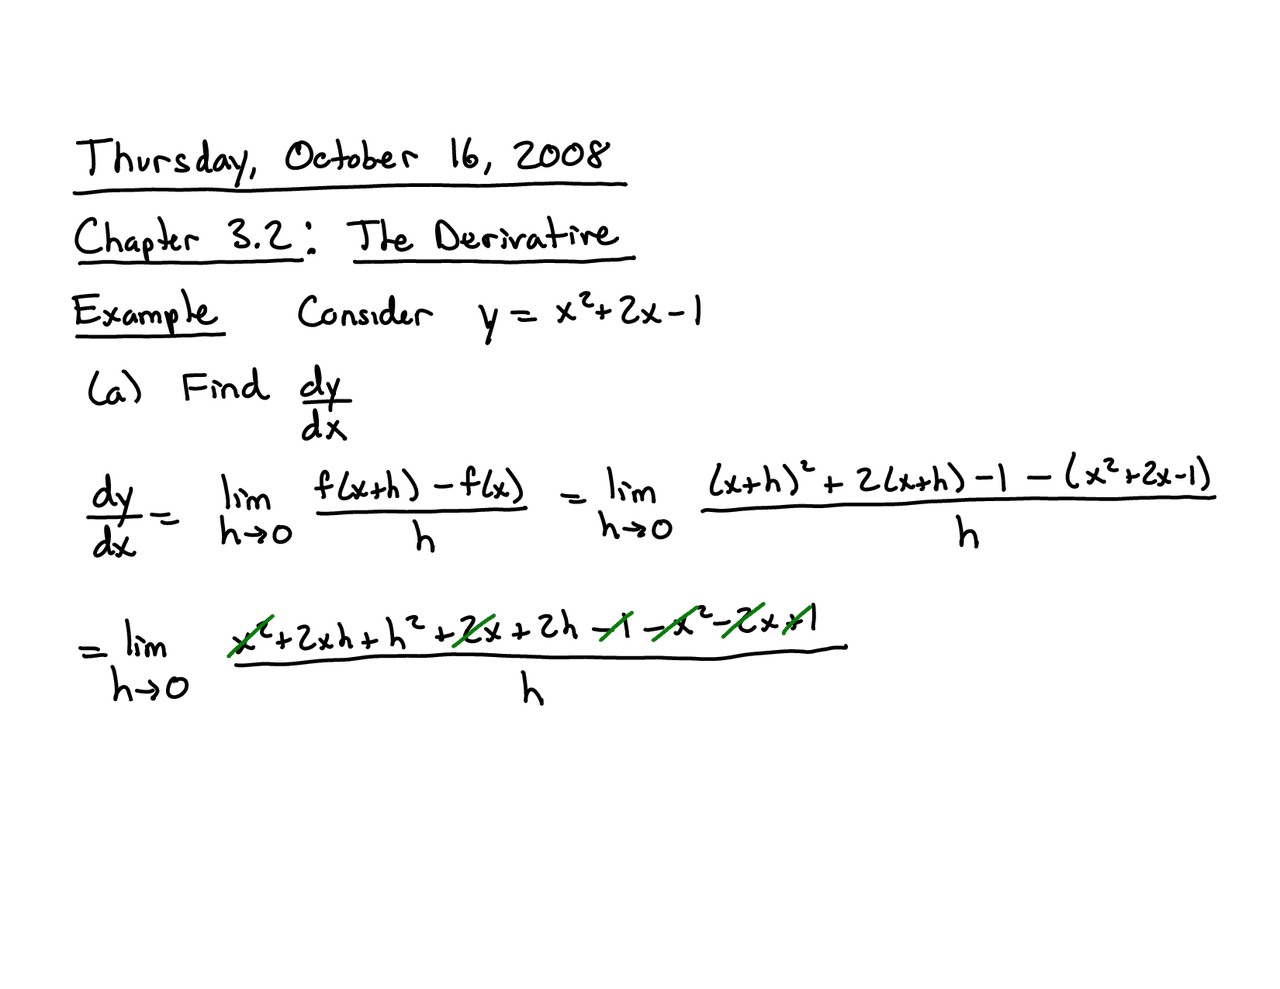 Thursday, October 16, 2008
Chapter 3.2: The Derivative
Example Consider y = x²+2x-1
(a) Find dy/dx
dy/dx = lim h→0 (f(x+h) - f(x))/h = lim h→0 ((x+h)² + 2(x+h) - 1 - (x²+2x-1))/h
= lim h→0 (x²+2xh+h²+2x+2h-1-x²-2x+1)/h